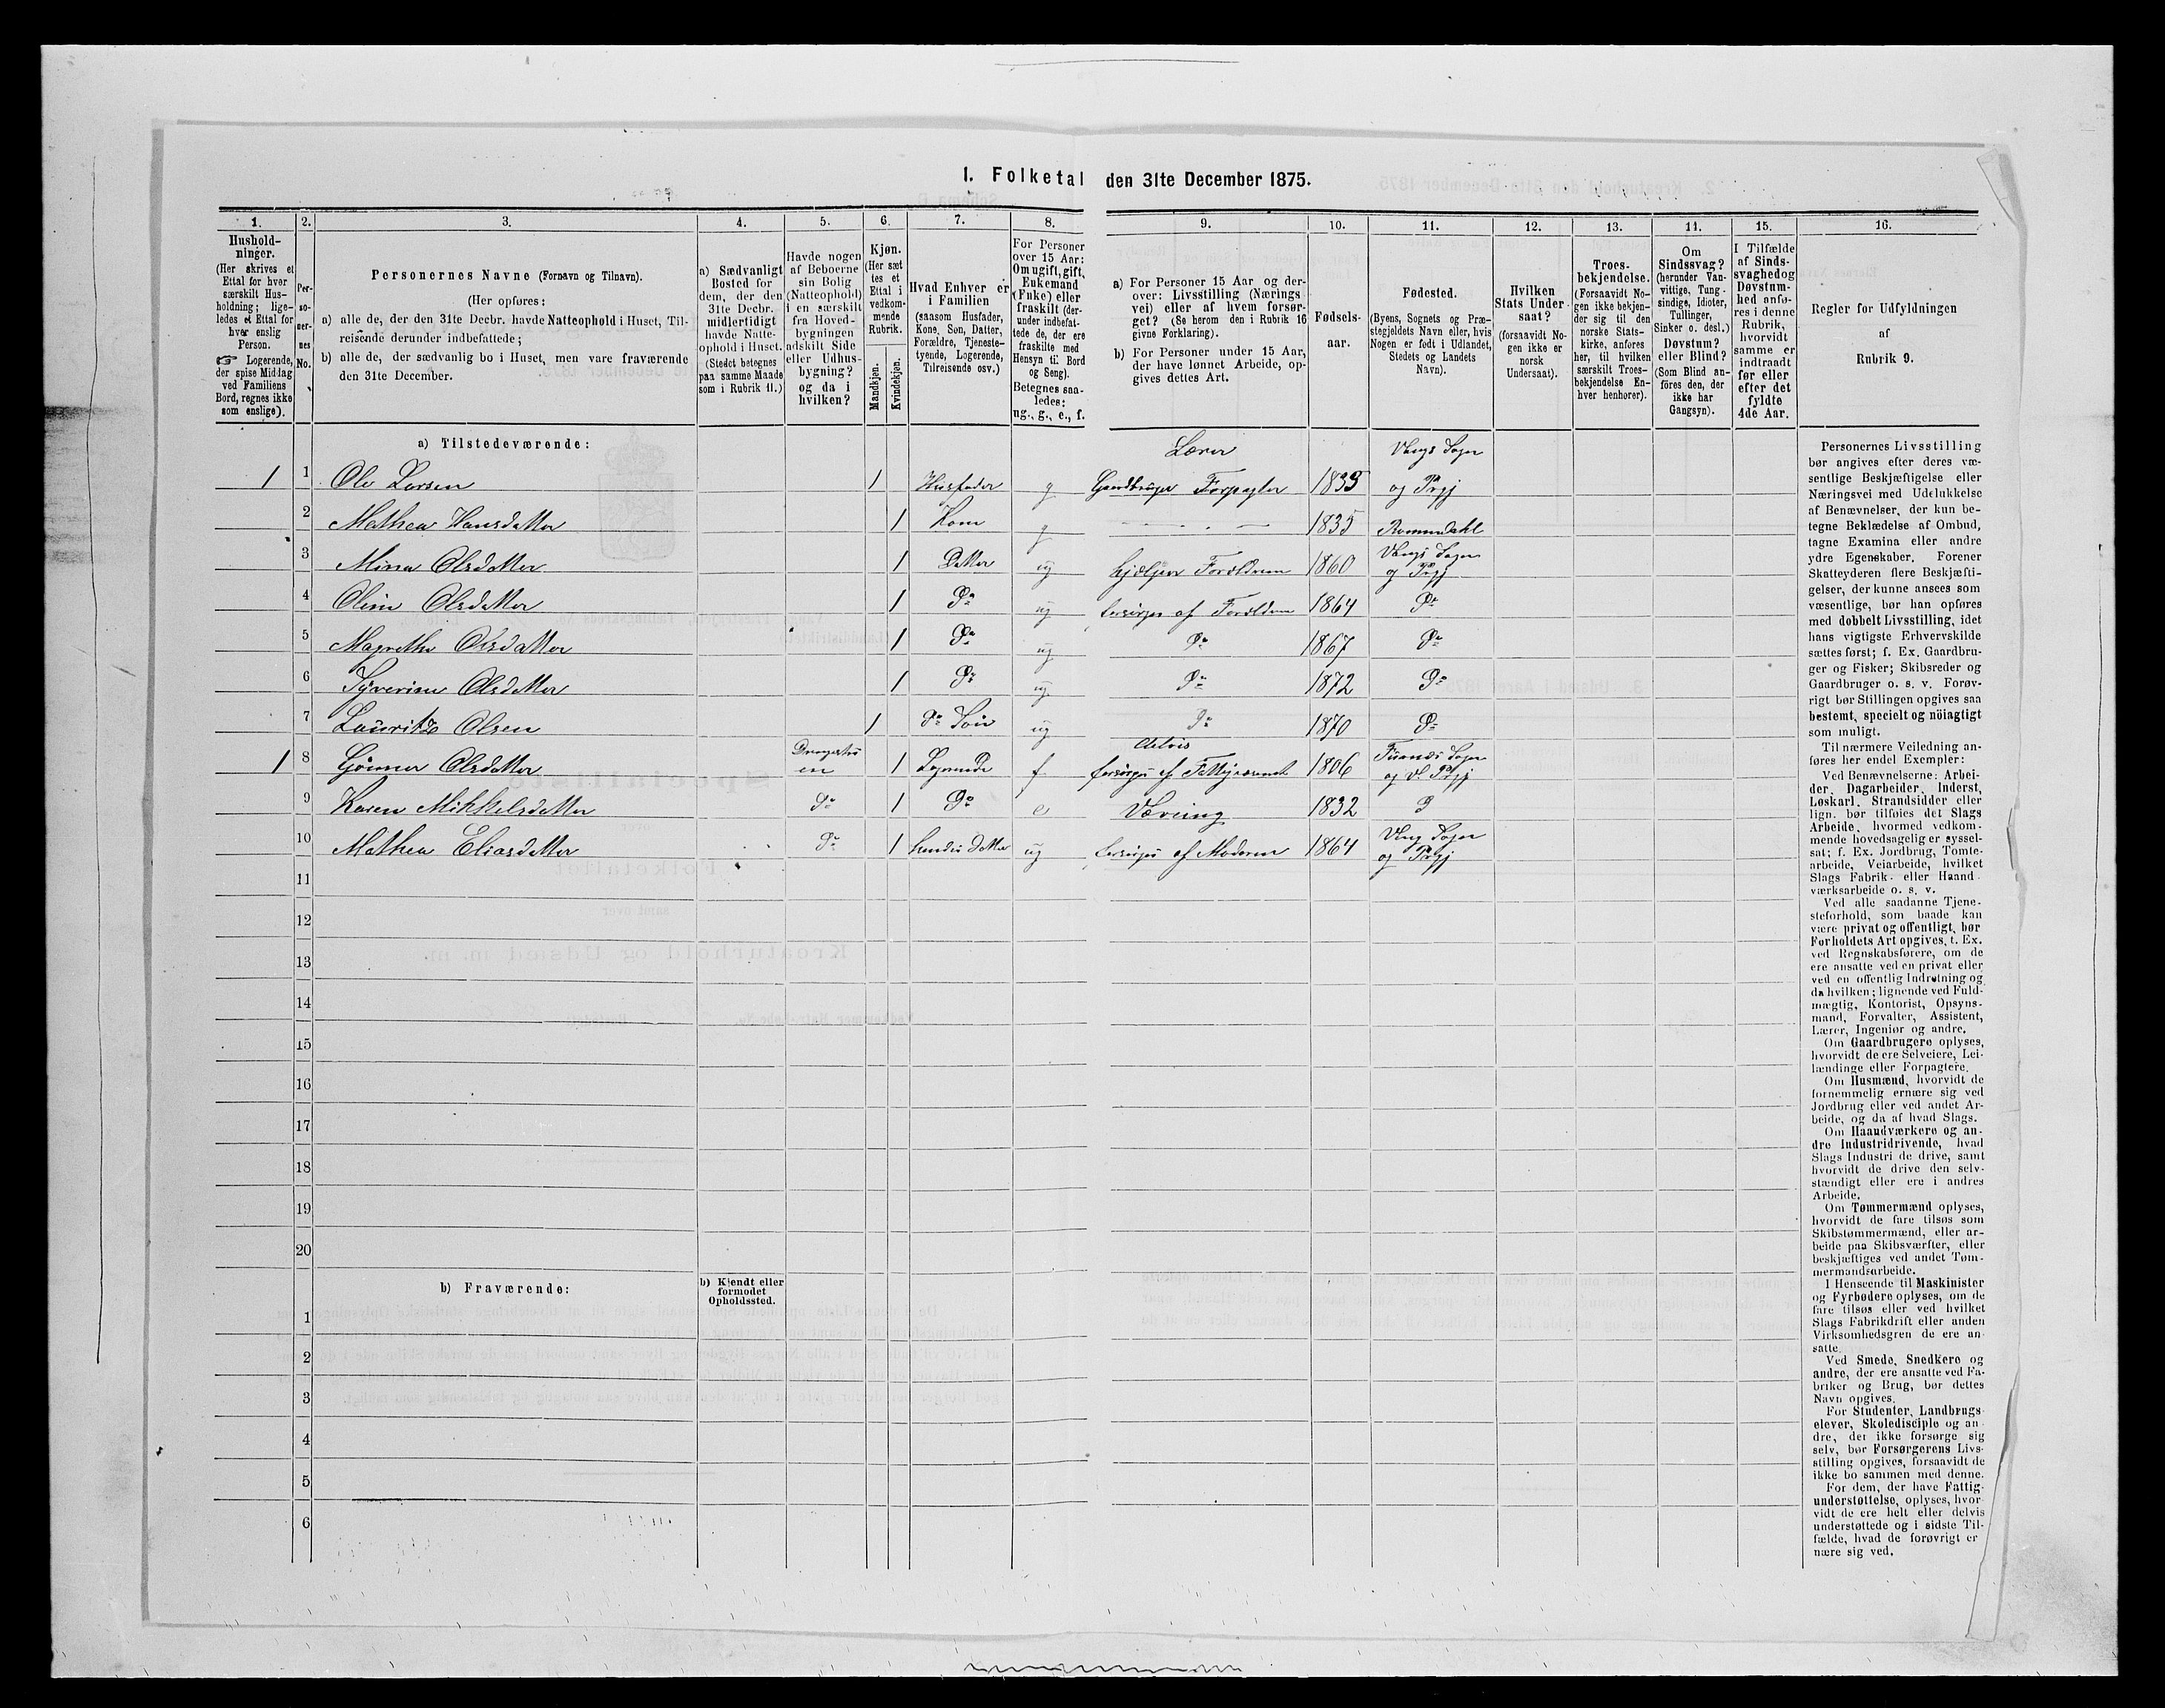 1. Folketal den 31te December 1875.
1. 2. 3. 4. 5. 6. 7. 8. 9. 10. 11. 12. 13. 14. 15. 16.
Hushold-
ninger.
(Her skrives et
Ettal for hver
særskilt Hus-
holdning; lige-
ledes et Ettal for
hver enslig
Person.
☞ Logerende,
der spise Middag
ved Familiens
Bord, regnes ikke
som enslige).
Per-
so-
ner-
nes
No.
Personernes Navne (Fornavn og Tilnavn).
(Her opføres:
a) alle de, der den 31te Decbr. havde Natteophold i Huset, Til-
reisende derunder indbefattede;
b) alle de, der sædvanlig bo i Huset, men vare fraværende
den 31te December.
a) Sædvanligt
Bosted for
dem, der den
31te Decbr.
midlertidigt
havde Natte-
ophold i Huset.
(Stedet betegnes
paa samme Maade
som i Rubrik 11.)
Havde nogen
af Beboerne
sin Bolig
(Natteophold)
i en særskilt
fra Hoved-
bygningen
adskilt Side
eller Udhus-
bygning?
og da i
hvilken?
Kjøn.
(Her sæt
tes et
Ettal i
vedkom-
mende
Rubrik.
Mandkjøn.
Kvindekjøn.
Hvad Enhver er
i Familien
(saasom Husfader,
Kone, Søn, Datter,
Forældre, Tjeneste-
tyende, Logerende,
Tilreisende osv.)
For Personer
over 15 Aar:
Om ugift, gift,
Enkemand
(Enke) eller
fraskilt (der-
under indbefat-
tede de, der ere
fraskilte med
Hensyn til Bord
og Seng).
Betegnes saa-
ledes:
ug., g., e., f.
a) For Personer 15 Aar og der-
over: Livsstilling (Nærings
vei) eller af hvem forsør-
get? (Se herom den i Rubrik 16
givne Forklaring).
b) For Personer under 15 Aar,
der have lønnet Arbeide, op-
gives dettes Art.
Fødsels-
aar.
Fødested.
(Byens, Sognets og Præ-
stegjeldets Navn eller, hvis
Nogen er født i Udlandet,
Stedets og Landets
Navn).
Hvilken
Stats Under
saat?
(forsaavidt No-
gen ikke er
norsk
Undersaat).
Troes-
bekjendelse.
(Forsaavidt No-
gen ikke bekjen-
der sig til den
norske Stats-
kirke, anføres
her, til hvilken
særskilt Troes-
bekjendelse En-
hver henhører).
Om
Sindssvag?
(herunder Van-
vittige, Tung-
sindige, Idioter,
Tullinger,
Sinker o. desl.)
Døvstum?
eller Blind?
(Som Blind an-
föres den, der
ikke har
Gangsyn).
I Tilfælde
af Sinds-
svaghed og
Døvstum-
hed anfø-
res i denne
Rubrik,
hvorvidt
samme er
indtraadt
før eller
efter det
fyldte
4de Aar.
Regler for Udfyldningen
af
Rubrik 9.
a) Tilstedeværende:
Lærer Vangs Sogn
1 1 Ole Larsen 1 Husfader g Gaardbruger Forpagter 1833 og Prgj
2 Mathea Hansdatter 1 Kone g 1835 Romsdahl
3 Mina Olsdatter 1 Datter ug hjælper Forældrene 1860 Vangs Sogn og Prgj
4 Oline Olsdatter 1 Do ug forsørges af Forældrene 1864 Do
5 Magrethe Olsdatter 1 Do ug Do 1867 Do
6 Syverine Olsdatter 1 Do ug Do 1872 Do
7 Lauritz Olsen 1 Do Søn ug Do 1870 Do
delvis
1 8 Olsdatter 1 Logerende f forsørges af Fattigvæsenet 1806 Furnæs Sogn og V. Prgj
9 Karen Mikkelsdatter Do 1 Do e Væving 1832 D
10 Mathea Eliasdatter Do 1 hendes Datter ug forsørges af Moderen 1864 Vang Sogn og Prgj
11
12
13
14
15
16
17
18
19
20
b) Fraværende:
b) Kjendt eller
formodet
Opholdssted.
1
2
3
4
5
6
Personernes Livsstilling
bør angives efter deres væ-
sentlige Beskjæftigelse eller
Næringsvei med Udelukkelse
af Benævnelser, der kun be-
tegne Beklædelse af Ombud,
tagne Examina eller andre
ydre Egenskaber. Forener
Skatteyderen flere Beskjæfti-
gelser, der kunne ansees som
væsentlige, bør han opføres
med dobbelt Livsstilling, idet
hans vigtigste Erhvervskilde
sættes først; f. Ex. Gaardbru-
ger og Fisker; Skibsreder og
Gaardbruger o. s. v. Forøv-
rigt bør Stillingen opgives saa
bestemt, specielt og nöiagtigt
som muligt.
Til nærmere Veiledning an-
føres her endel Exempler:
Ved Benævnelserne: Arbei-
der, Dagarbeider, Inderst,
Løskarl, Strandsidder eller
lign. bør tilføies det Slags
Arbeide, hvormed vedkom-
mende hovedsagelig er syssel-
sat; f. Ex. Jordbrug, Tomte-
arbeide, Veiarbeide, hvilket
Slags Fabrik- eller Haand-
værksarbeide o. s. v.
Ved alle saadanne Tjene-
steforhold, som baade kan
være privat og offentligt, bør
Forholdets Art opgives, t. Ex.
ved Regnskabsførere, om de
ere ansatte ved en privat eller
ved en offentlig Indretning og
da hvilken; lignende ved Fuld-
mægtig, Kontorist, Opsyns-
mand, Forvalter, Assistent,
Lærer, Ingeniør og andre.
Om Gaardbrugere oplyses,
hvorvidt de ere Selveiere, Lei-
lændinge eller Forpagtere.
Om Husmænd, hvorvidt de
fornemmelig ernære sig ved
Jordbrug eller ved andet Ar-
beide, og da af hvad Slags.
Om Haandværkere og an-
dre Industridrivende, hvad
Slags Industri de drive, samt
hvorvidt de drive den selv-
stændigt eller ere i andres
Arbeide.
Om Tømmermænd oplyses,
hvorvidt de fare tilsøs som
Skibstømmermænd, eller ar-
beide paa Skibsværfter, eller
beskjæftiges ved andet Tøm-
mermandsarbeide.
I Henseende til Maskinister
og Fyrbødere oplyses, om de
fare tilsøs eller ved hvilket
Slags Fabrikdrift eller anden
Virksomhedsgren de ere an-
satte.
Ved Smede, Snedkere og
andre, der ere ansatte ved Fa-
briker og Brug, bør dettes
Navn opgives.
For Studenter, Landbrugs-
elever, Skoledisciple og an-
dre, der ikke forsørge sig
selv, bør Forsørgerens Livs-
stilling opgives, forsaavidt de
ikke bo sammen med denne.
For dem, der have Fattig-
understøttelse, oplyses, hvor-
vidt de ere helt eller delvis
understøttede og i sidste Til-
fælde, hvad de forøvrigt er-
nære sig ved.